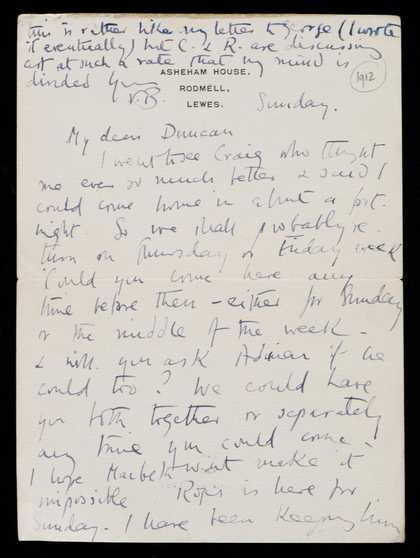 this is rather like my letter to George (I wrote
it eventually) but C. & R. are discussing
art at such a rate that my mind is
divided
V.B.
1912
ASHEHAM HOUSE,
RODMELL,
LEWES.
Sunday.
My dear Duncan
I went to see Craig who thought
me ever so much better & said I
could come home in about a fort-
night. So we shall probably re-
turn on Thursday or Friday week
Could you come here any
time before then – either for Sunday
or the middle of the week –
& will you ask Adrian if he
could too? We could have
you both together or separately
any time you could come –
I hope Macbeth won't make it
impossible Roger is here for
Sunday. I have been keeping him